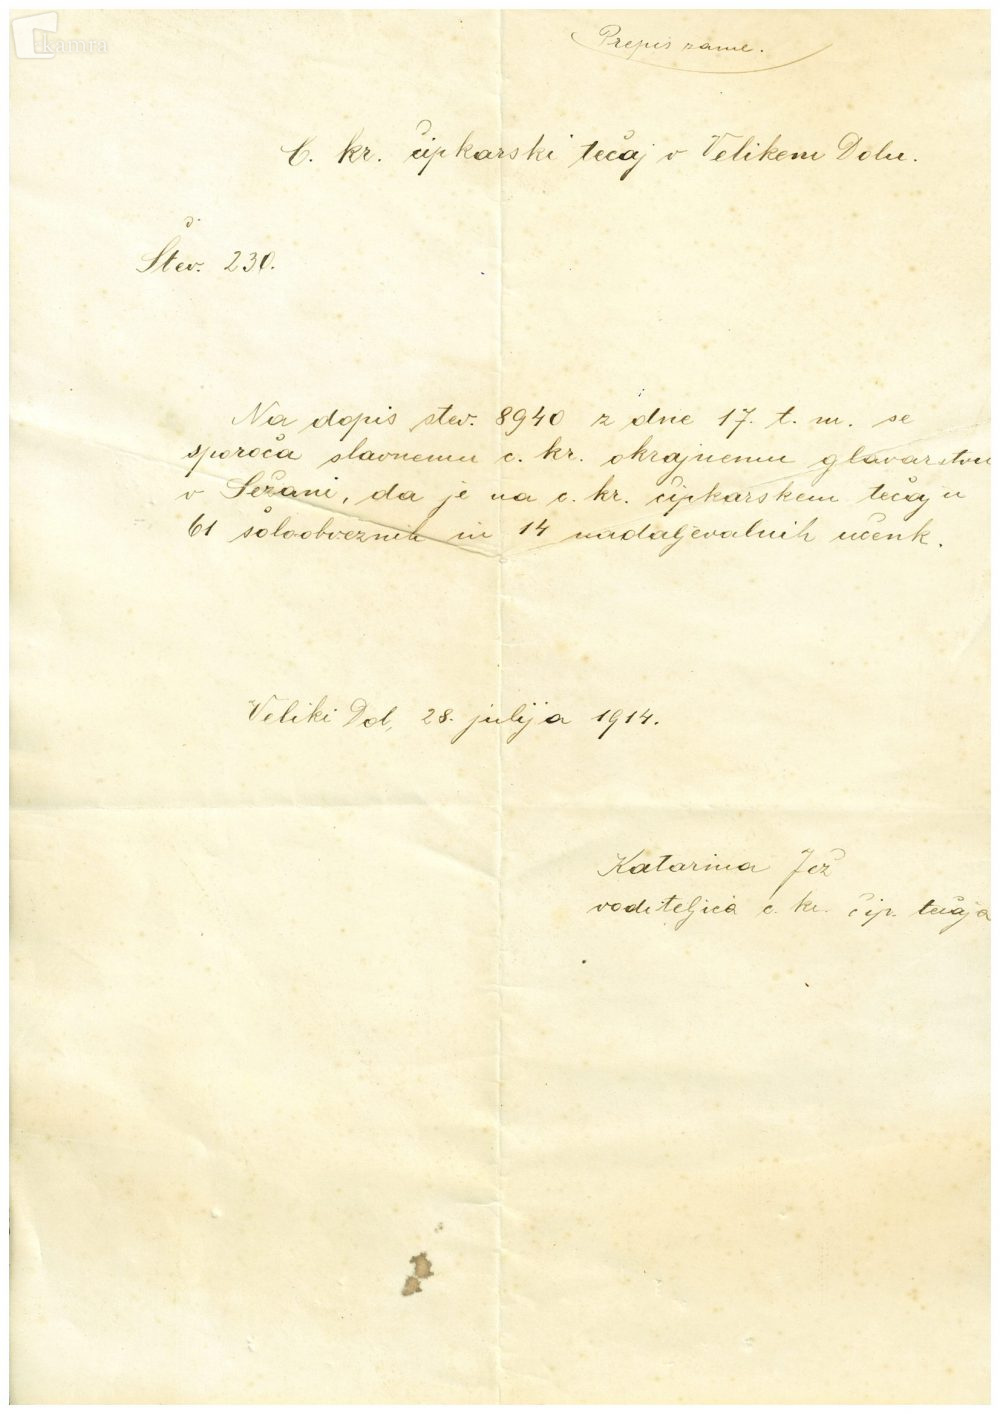 kamra
Prepis zame.
C. kr. čipkarski tečaj v Velikem Dolu.
Štev. 230.
Na dopis štev. 8940 z dne 17. t. m. se
sporoča slavnemu c. kr. okrajnemu glavarstvu
v Sežani, da je na c. kr. čipkarskem tečaju
61 šoloobveznih in 14 nadaljevalnih učenk.
Veliki Dol, 28. julija 1914.
Katarina Jež
voditeljica c. kr. čip. tečaja